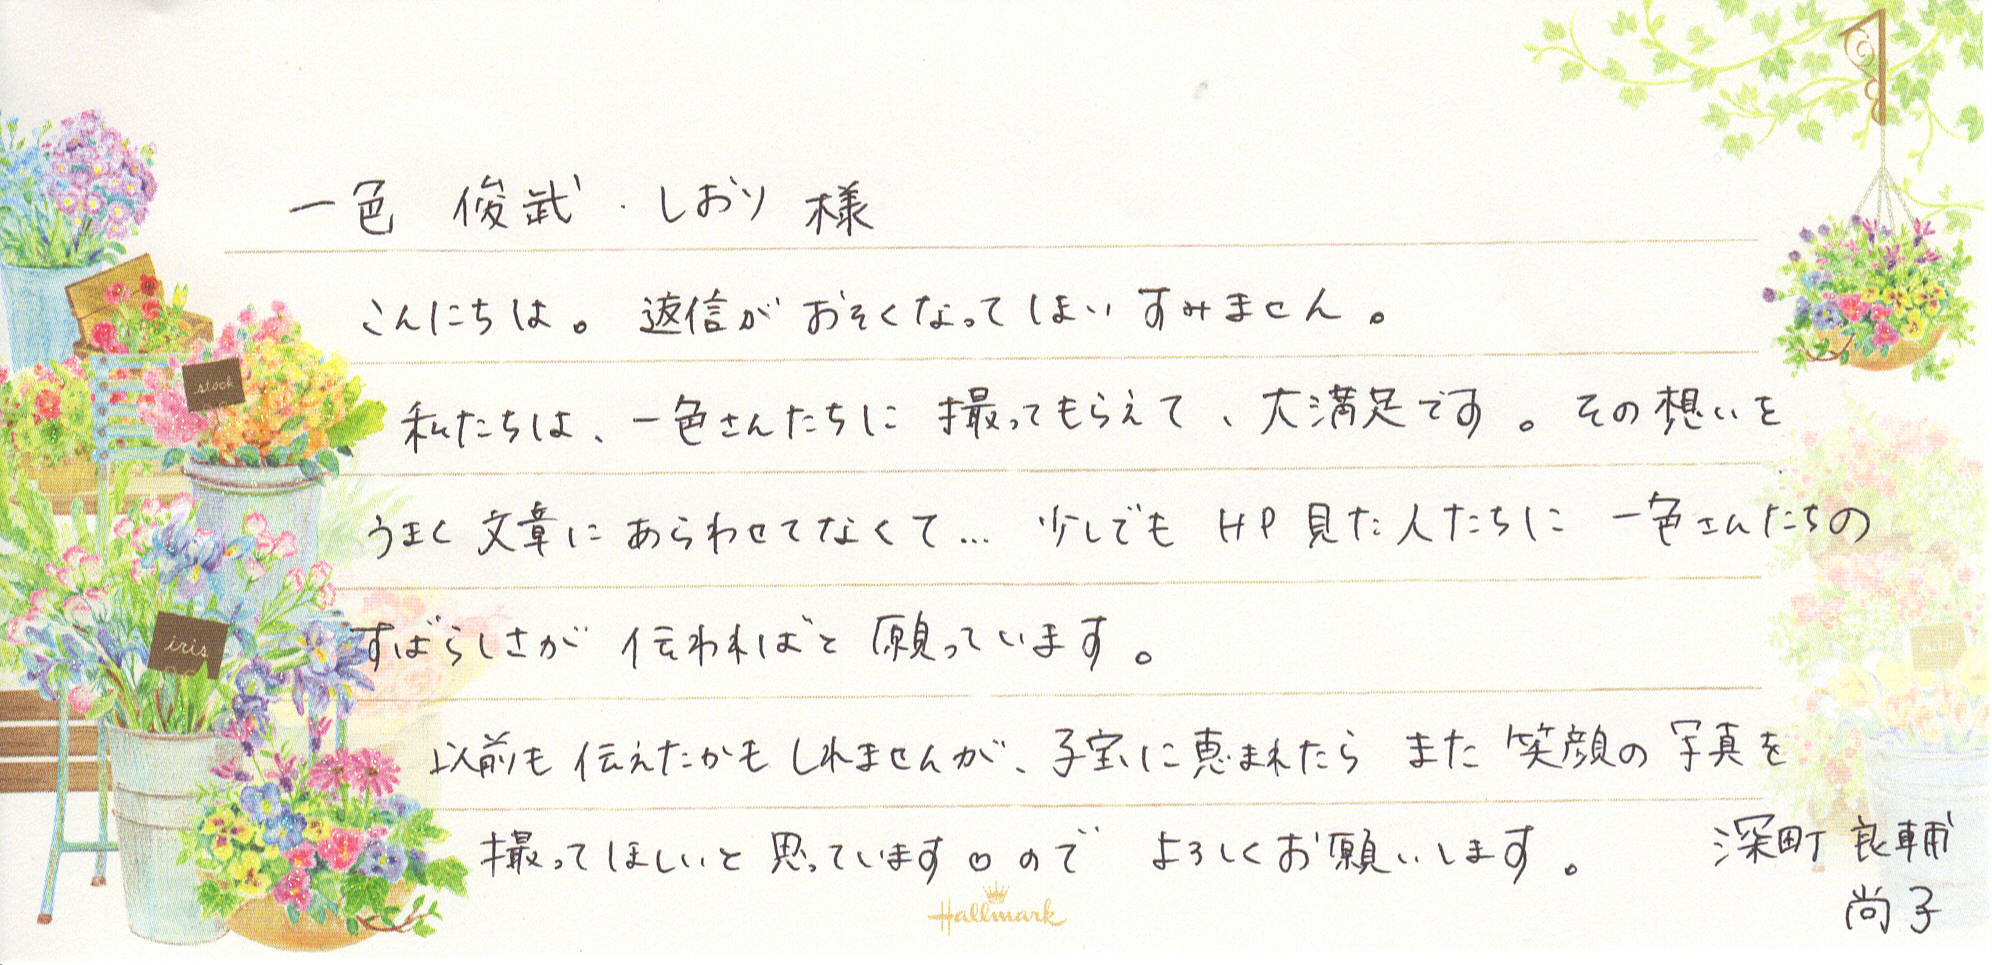 一色 俊武・しおり 様
こんにちは。返信がおそくなってしまい すみません。
私たちは、一色さんたちに 撮ってもらえて、大満足です。その想いを
うまく 文章に あらわせてなくて… 少しでも HP 見た人たちに 一色さんたちの
すばらしさが 伝われば と 願っています。
以前も 伝えたかも しれませんが、子宝に恵まれたら また 笑顔の 写真を
撮ってほしいと 思っています♡ので よろしくお願いします。 深町 良輔
尚子
stock
iris
Hallmark